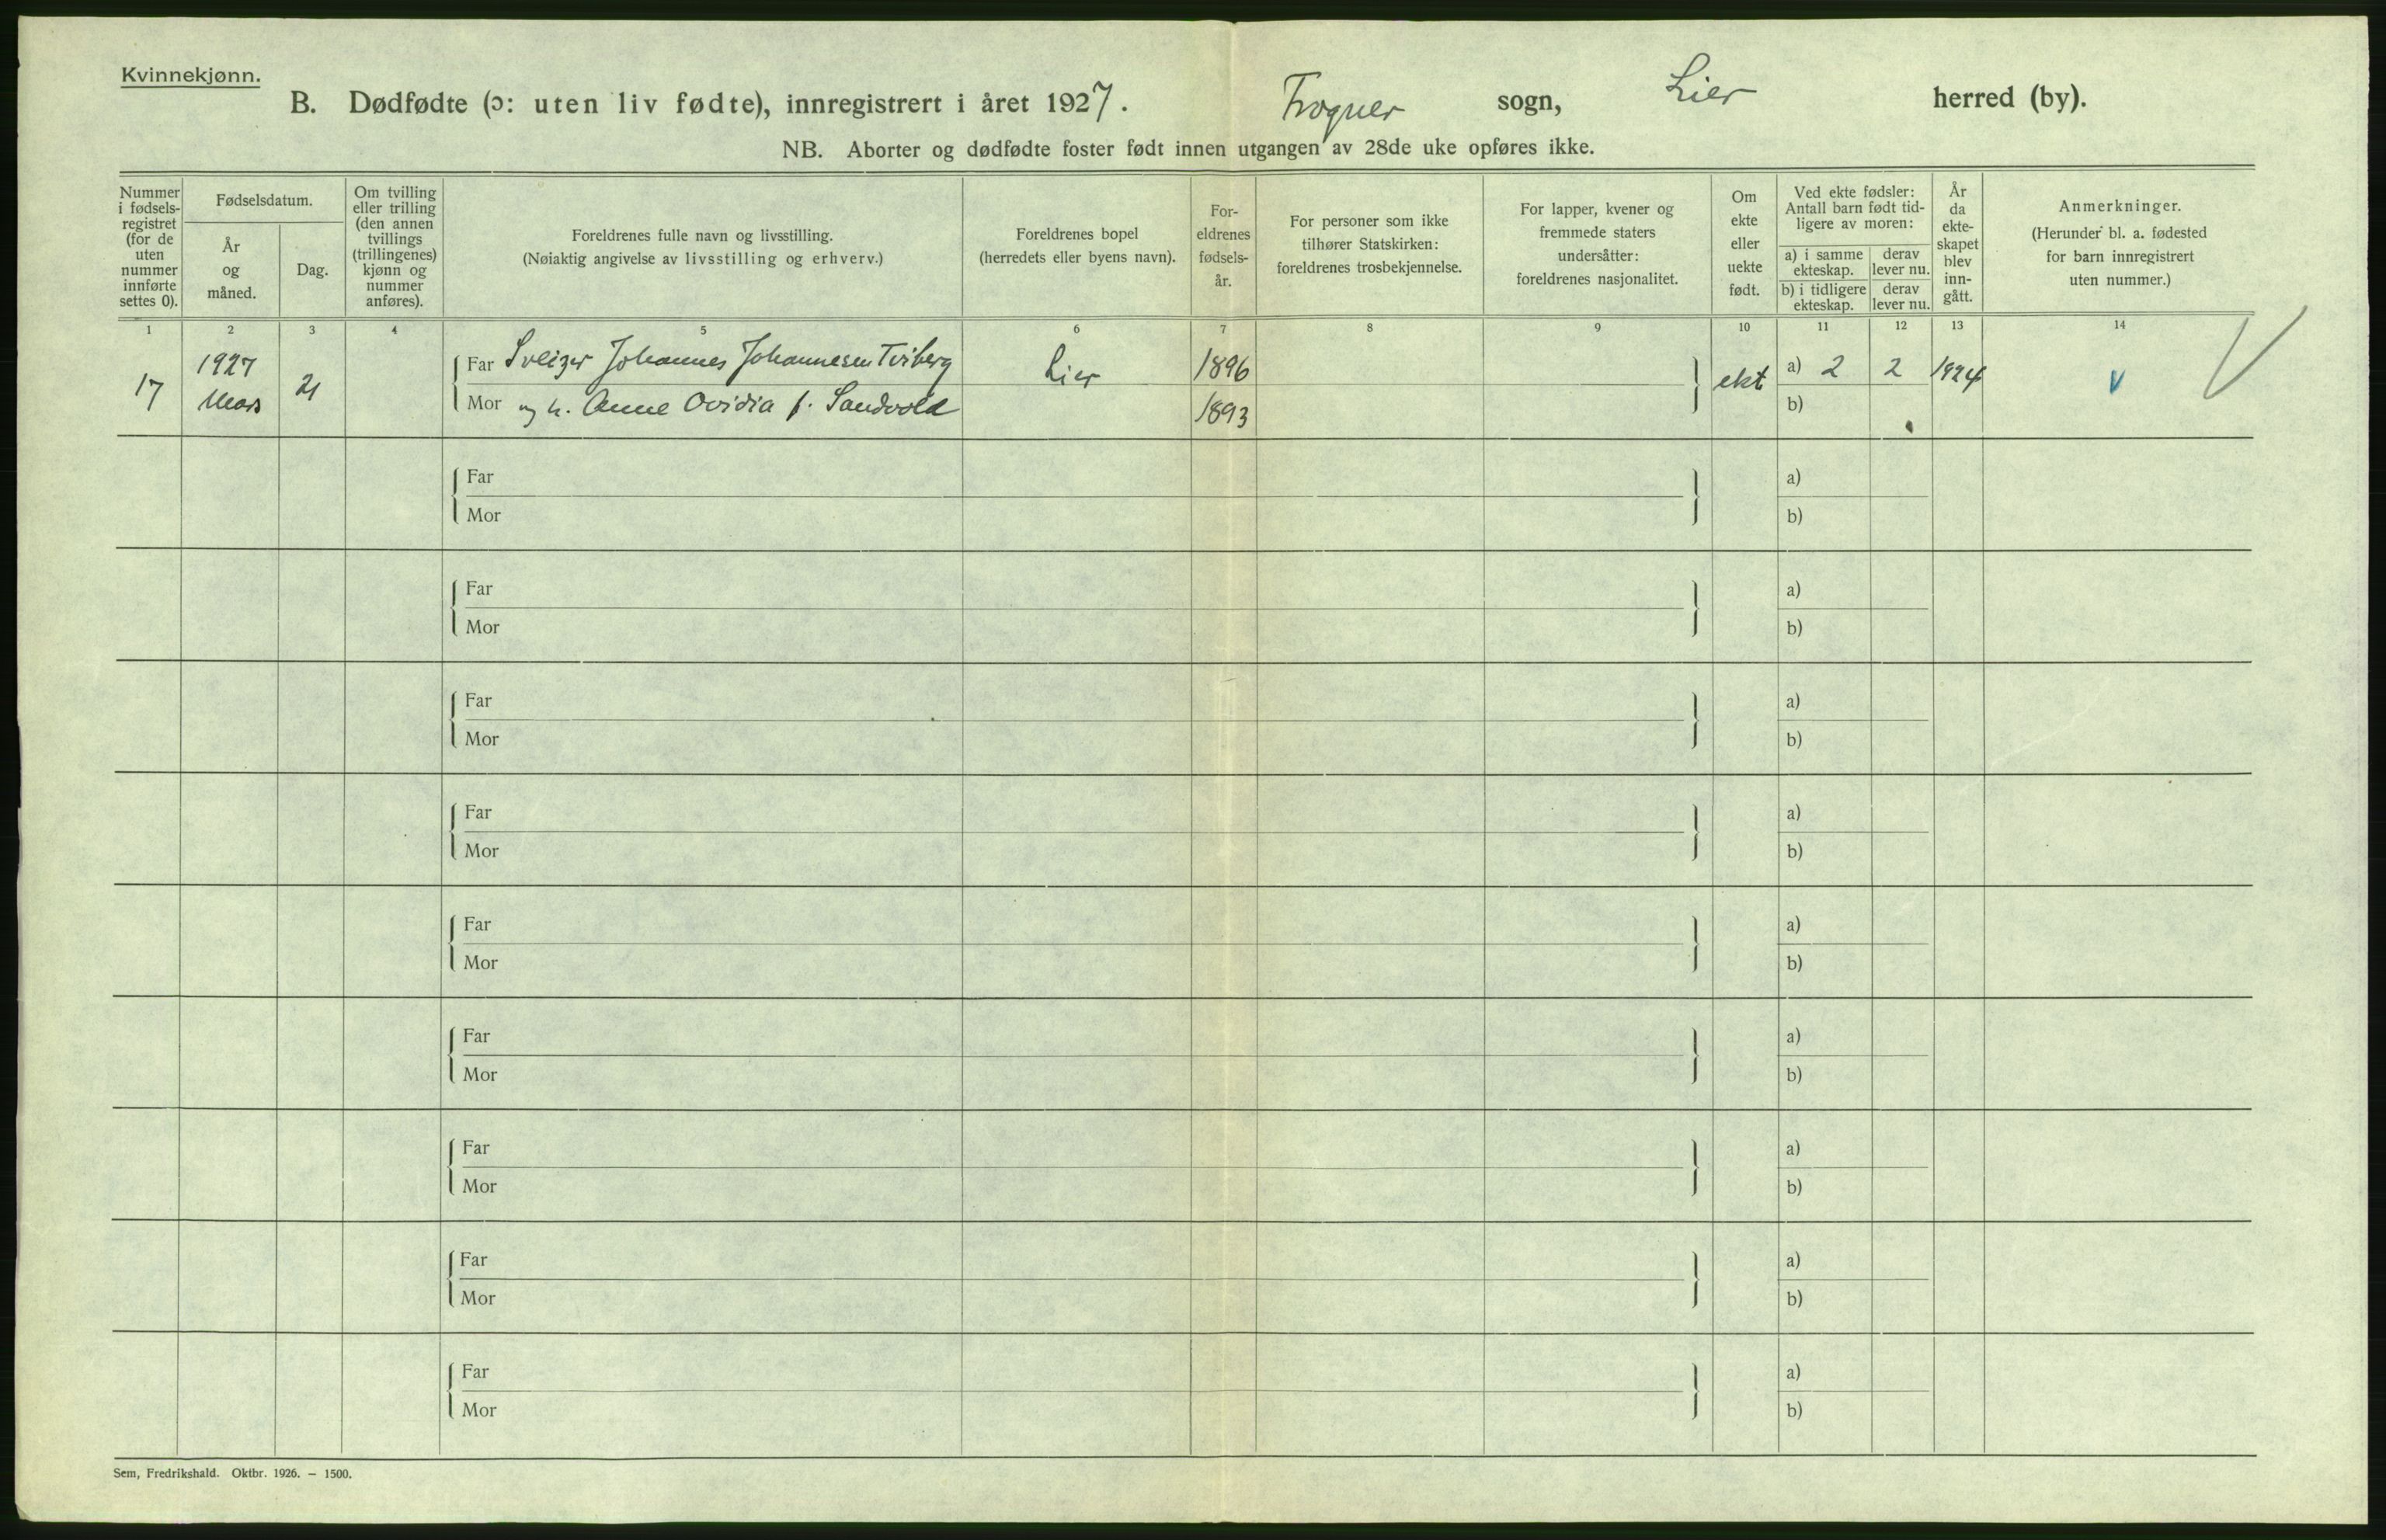 Kvinnekjønn.
B. Dødfødte (ɔ: uten liv fødte), innregistrert i året 1927. Frogner sogn, Lier herred (by).
NB. Aborter og dødfødte foster født innen utgangen av 28de uke opføres ikke.
Nummer i fødsels-registret (for de uten nummer innførte settes 0).
Fødselsdatum.
År og måned.
Dag.
Om tvilling eller trilling (den annen tvillings (trillingenes) kjønn og nummer anføres).
Foreldrenes fulle navn og livsstilling.
(Nøiaktig angivelse av livsstilling og erhverv.)
Foreldrenes bopel
(herredets eller byens navn).
For-eldrenes fødsels-år.
For personer som ikke tilhører Statskirken: foreldrenes trosbekjennelse.
For lapper, kvener og fremmede staters undersåtter: foreldrenes nasjonalitet.
Om ekte eller uekte født.
Ved ekte fødsler: Antall barn født tid-ligere av moren:
a) i samme ekteskap. derav lever nu.
b) i tidligere ekteskap. derav lever nu.
År da ekte-skapet blev inn-gått.
Anmerkninger.
(Herunder bl. a. fødested for barn innregistrert uten nummer.)
1 2 3 4 5 6 7 8 9 10 11 12 13 14
17 1927 Mars 21 Far Sveizer Johannes Johannesen Tviberg Lier 1896 ekt a) 2 2 1924 V
Mor og h. Anne Ovidia f. Sandvold 1893 b)
Far a)
Mor b)
Far a)
Mor b)
Far a)
Mor b)
Far a)
Mor b)
Far a)
Mor b)
Far a)
Mor b)
Far a)
Mor b)
Far a)
Mor b)
Far a)
Mor b)
Sem, Fredrikshald. Oktbr. 1926. – 1500.